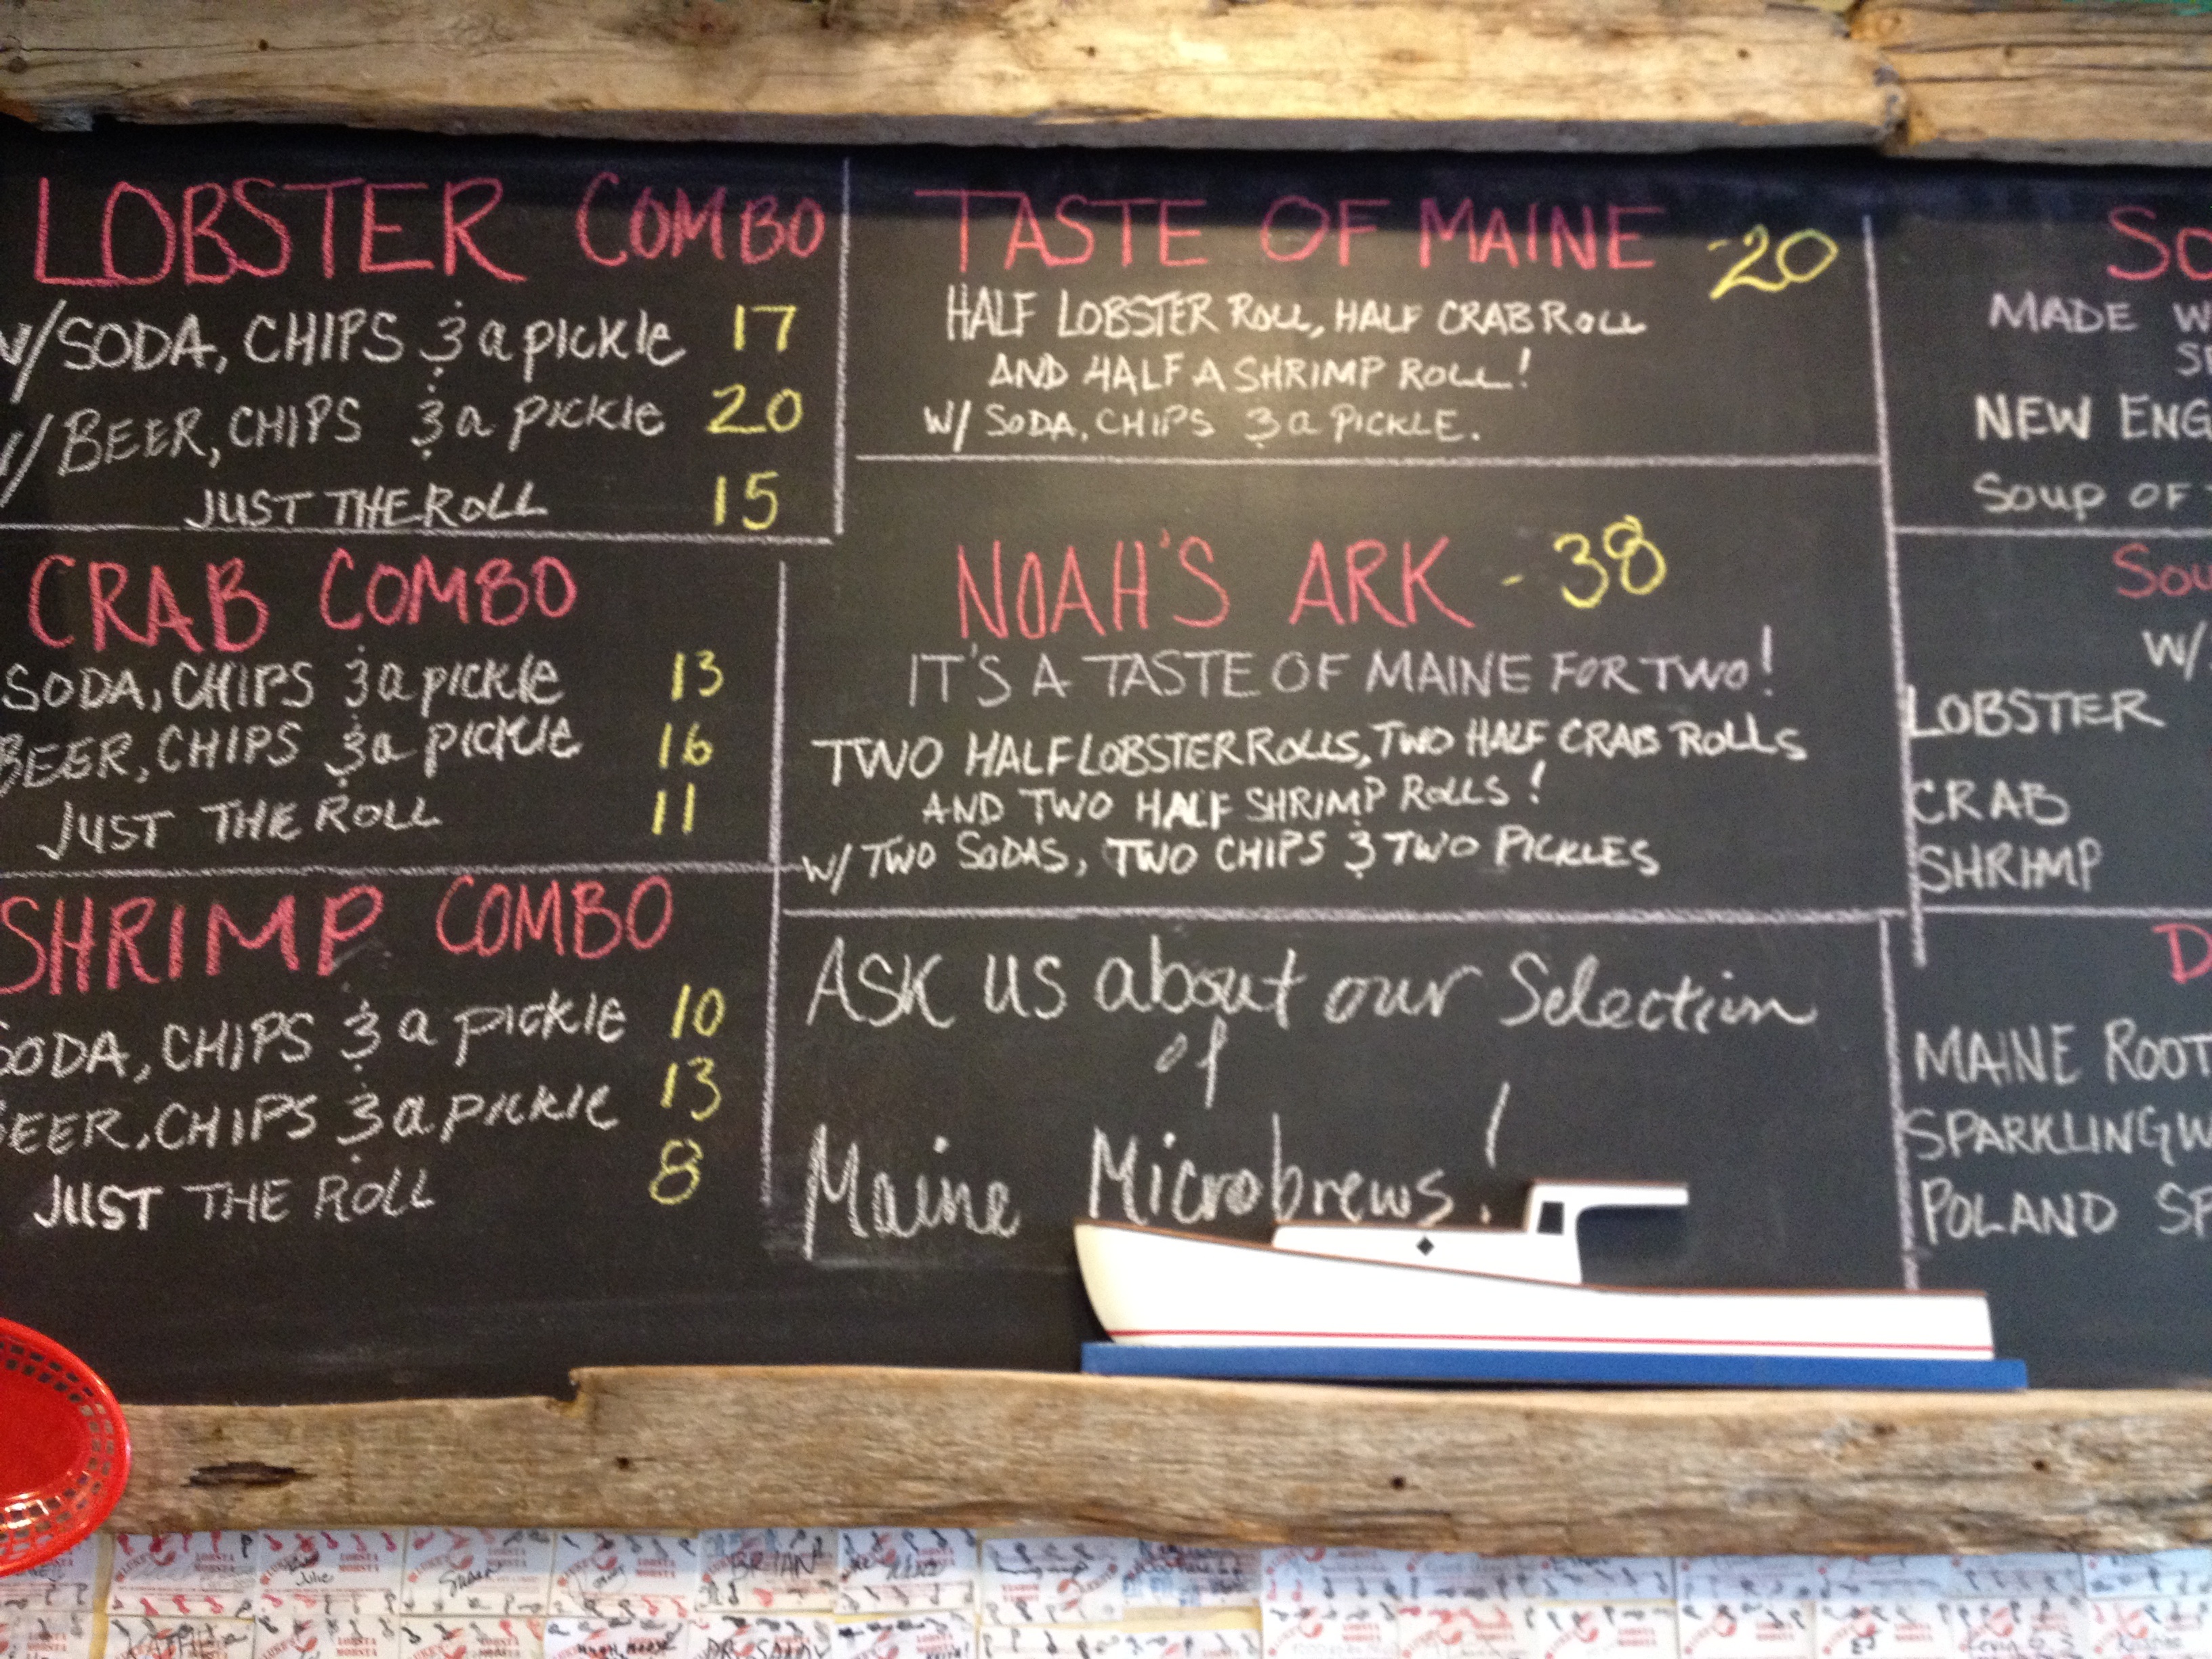 LOBSTER COMBO
W/SODA, CHIPS & a pickle 17
W/BEER, CHIPS & a pickle 20
JUST THE ROLL 15
CRAB COMBO
SODA, CHIPS & a pickle 13
BEER, CHIPS & a pickle 16
JUST THE ROLL 11
SHRIMP COMBO
SODA, CHIPS & a pickle 10
BEER, CHIPS & a pickle 13
JUST THE ROLL 8
TASTE OF MAINE -20
HALF LOBSTER ROLL, HALF CRAB ROLL
AND HALF A SHRIMP ROLL!
W/ SODA, CHIPS & a PICKLE.
NOAH'S ARK - 38
IT'S A TASTE OF MAINE FOR TWO!
TWO HALF LOBSTER ROLLS, TWO HALF CRAB ROLLS
AND TWO HALF SHRIMP ROLLS!
W/ TWO SODAS, TWO CHIPS & TWO PICKLES
ASK US about our Selection
of
Maine Microbrews!
MADE
NEW ENG
Soup OF
W/
LOBSTER
CRAB
SHRIMP
MAINE ROOT
SPARKLING W
POLAND SP
Julie
Susan
BRIAN
KATHIE